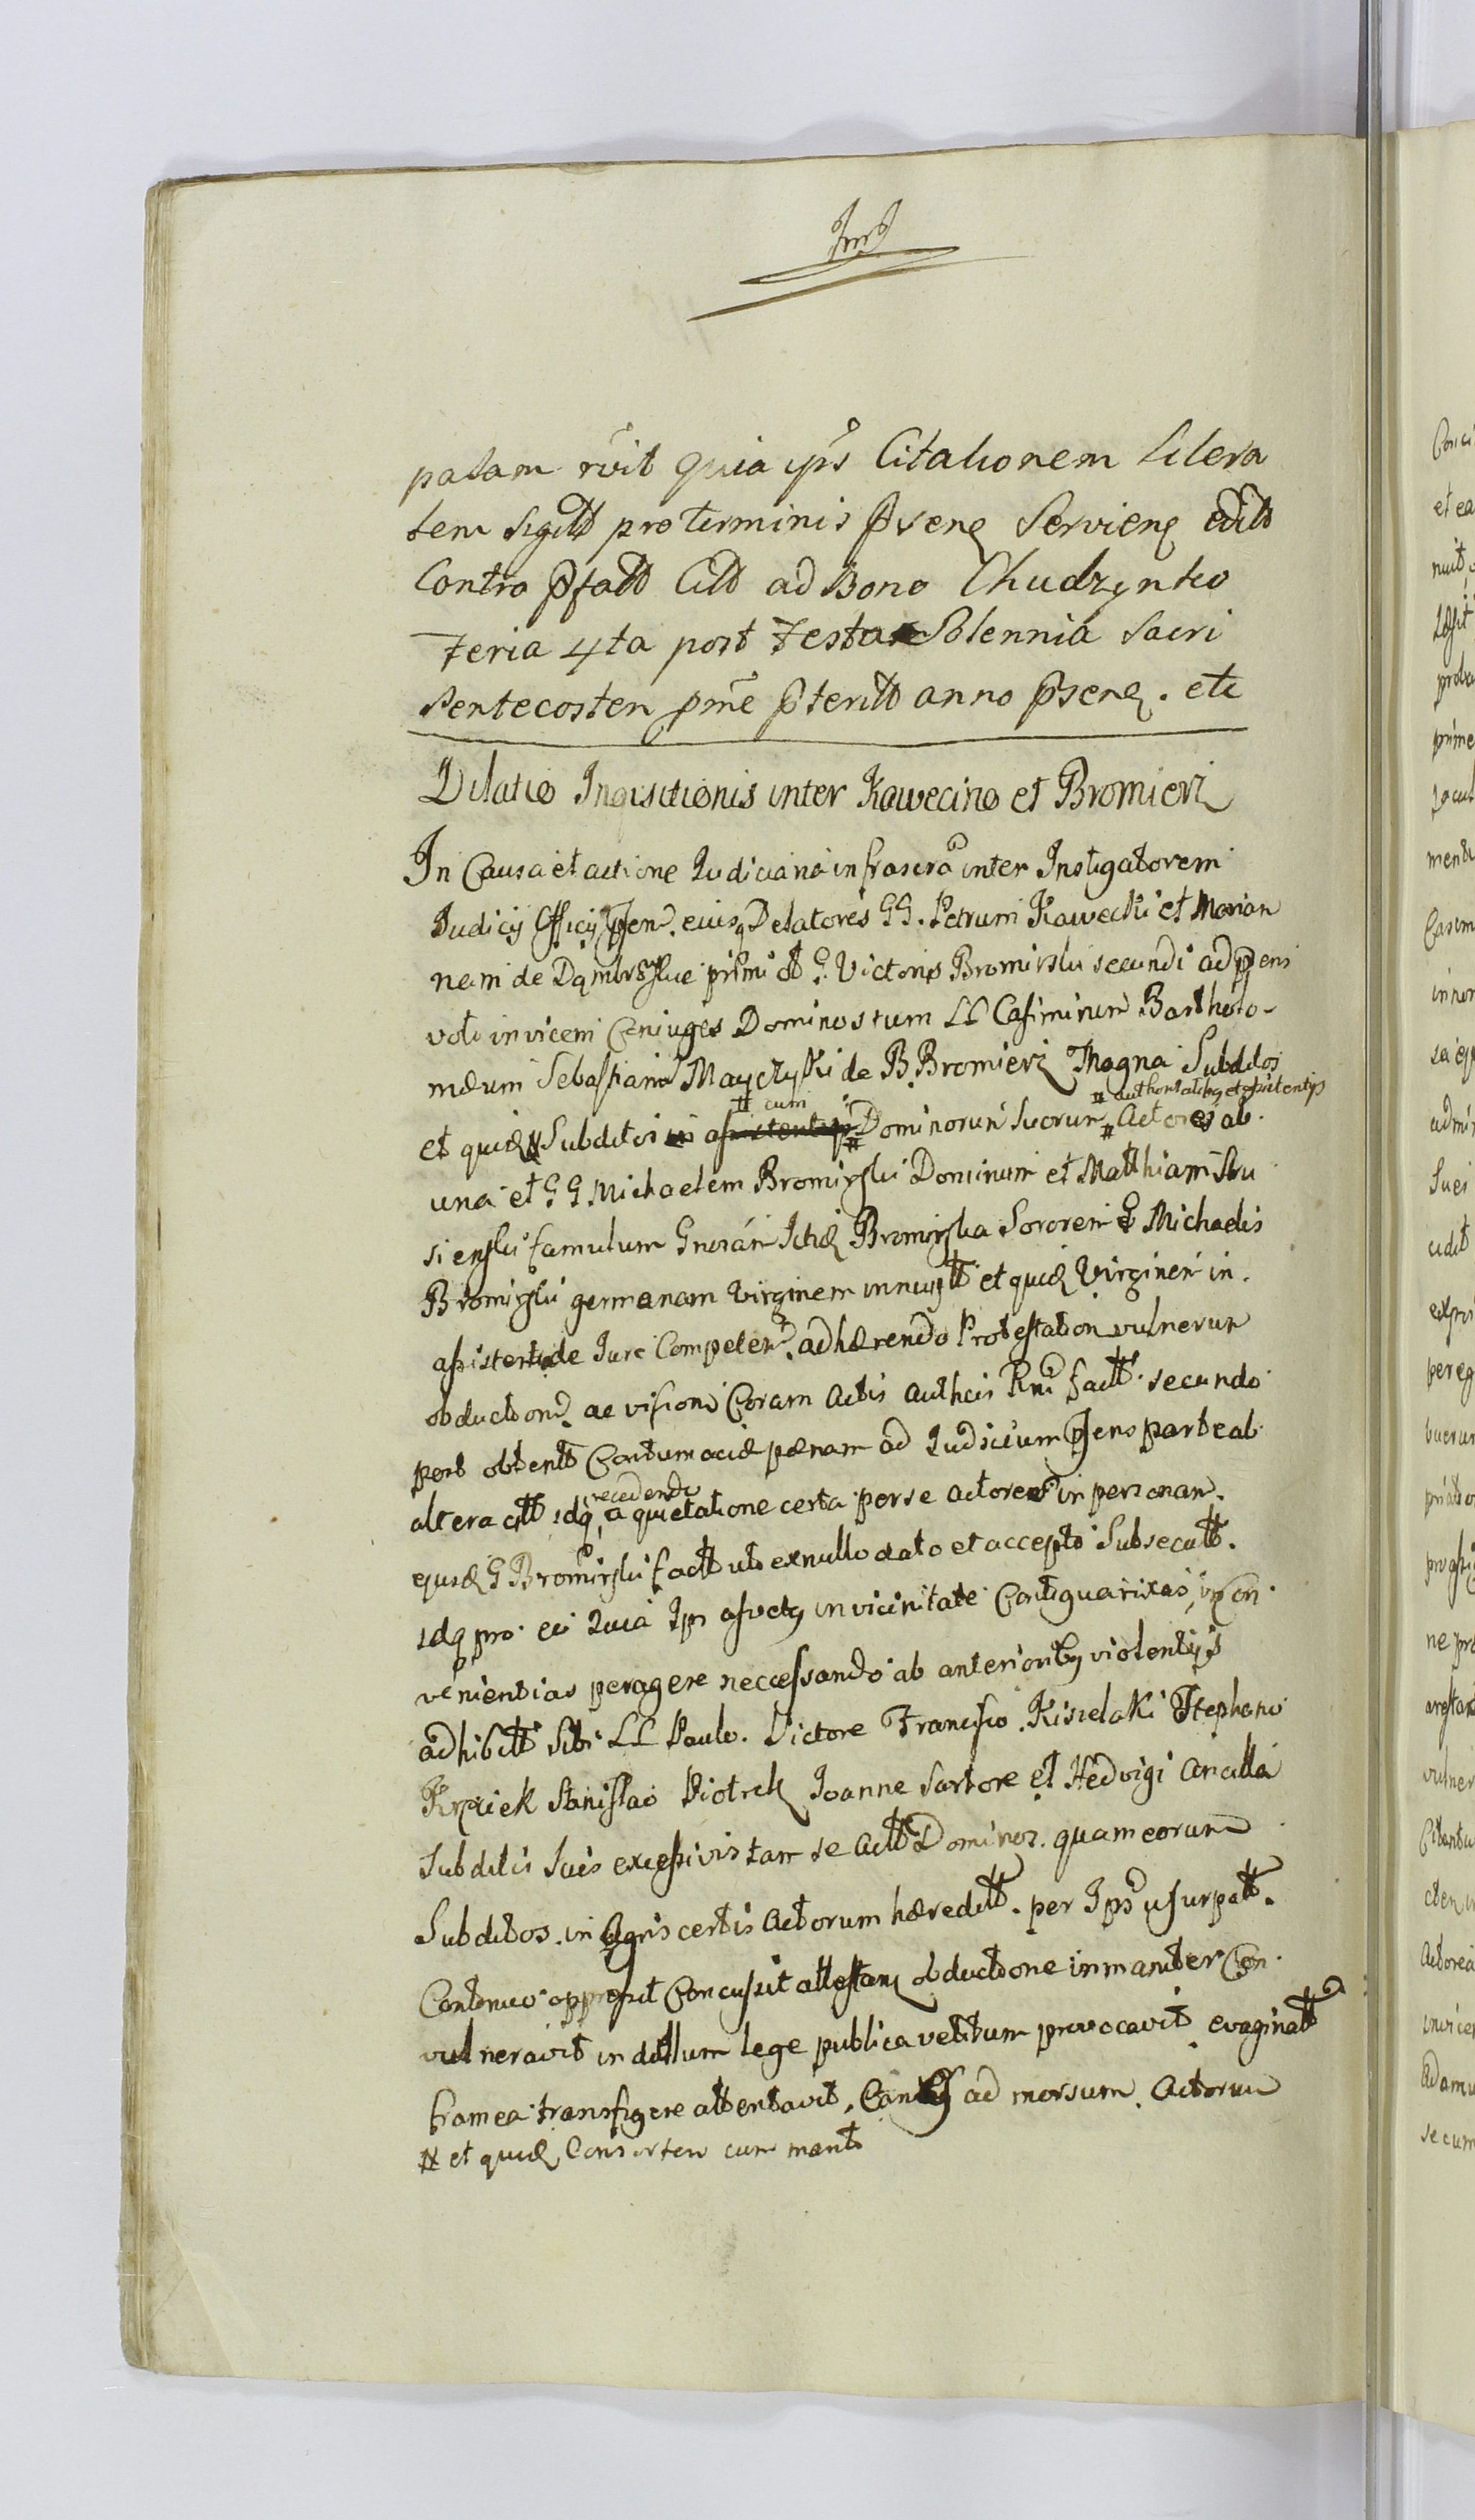 palam rvit quia ips Citationem Litera
tem Sigillt pro terminis psenq Servienq edit
Contra pfatt Citt ad Bona Chudzynko
Feria 4ta post Festa Solennia Sacri
Pentecosten pme pteritt anno psenq. etc
Dilatio Inqisitionis inter Kawecino et Bromierz
In Causa et actione Iudiciana infrascra inter Instigatorem
Iudicij Officij psen. eiusq Delatores GG. Petrum Kawecki et Marian
nam de primi et G. Victoris Bromirski secundi ad psens
voti invicem Coniuges Dominos tum LL Casimirum Bartholo-
mæum Sebastianum de B. Bromierz Thogna Subditos
# cum # authoritatibq et assistentijs
et quidæ N Subditos in assistentijs # Dominorum suorum # Actores ab
una et GG Michaelem Bromirski Dominum et Matthiam Stru
sienski famulum Gnosam Bromirska Sororem G Michaelis
Bromirski germanam Virginem innuptt et quidæ Virginem in
assistentia de Iure Competen. adhærendo Protestation vulnerum
obduction. ac vision Coram Actis Fact secundo
post obtentt Contumaciæ pænam ad Iudicium psens parte ab
recedendo
altera citt idq, a quietatione certa per se actores in personam
ejusd G Bromirski factt uto ex nullo dato et accepto Subsecutt.
idq pro eo Quia Ips assvetq in vicinitate Contigua rixas, in con
venientias peragere neccessando ab anterioribq violentijs
adhibitt Sibi LL Paulo. Victore Francisco. Kisielaki Stephano
Stanislao Piotrek Ioanne Sartore et Hedvigi Ancilla
Subditis Suis excessivis tam se Actt Dominos. quam eorum
Subditos. in Agris certis Actorum hæreditt. per Ips usurpatt.
Continuo oppressit Concussit attestanq obductione inmaniter Con
vulneravit in dutllum lege publica vetitum provocavit evaginatt
framea transfigere attentavit, Canibq ad morsum Actorum
N et quidæ Consortem cum